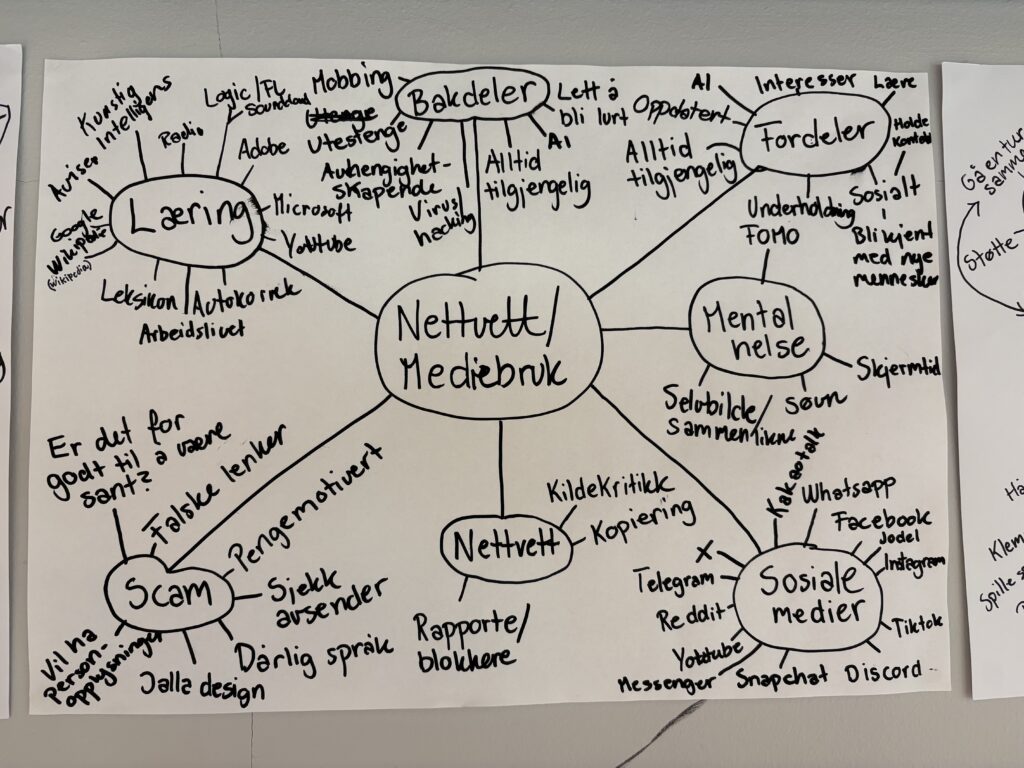 Nettvett/
Mediebruk
Læring
Kunstig
Intelligens
Radio
Logic/FL
Soundcloud
Adobe
Microsoft
Youtube
Autokorrek
Arbeidslivet
Leksikon
(wikipedia)
Google
Aviser
Bakdeler
Mobbing
Utestenge
Avhengighet-
skapende
Virus/
hacking
Alltid
tilgjengelig
AI
Lett å
bli lurt
Fordeler
AI
Oppdatert
Alltid
tilgjengelig
Interesser
Lære
Holde
Kontakt
Sosialt
Bli kjent
med nye
mennesker
Underholdning
Mental
helse
FOMO
Skjermtid
søvn
Selvbilde/
sammenlikne
Sosiale
medier
Kakaotalk
Whatsapp
Facebook
Jodel
Instagram
Tiktok
Discord
Snapchat
Messenger
Youtube
Reddit
Telegram
X
Nettvett
KildeKritikk
Kopiering
Rapporte/
blokkere
Scam
Er det for
godt til å være
sant?
Falske lenker
Pengemotivert
Sjekk
avsender
Dårlig språk
Jalla design
Vil ha
Person-
opplysninger
Gå en tur
Støtte